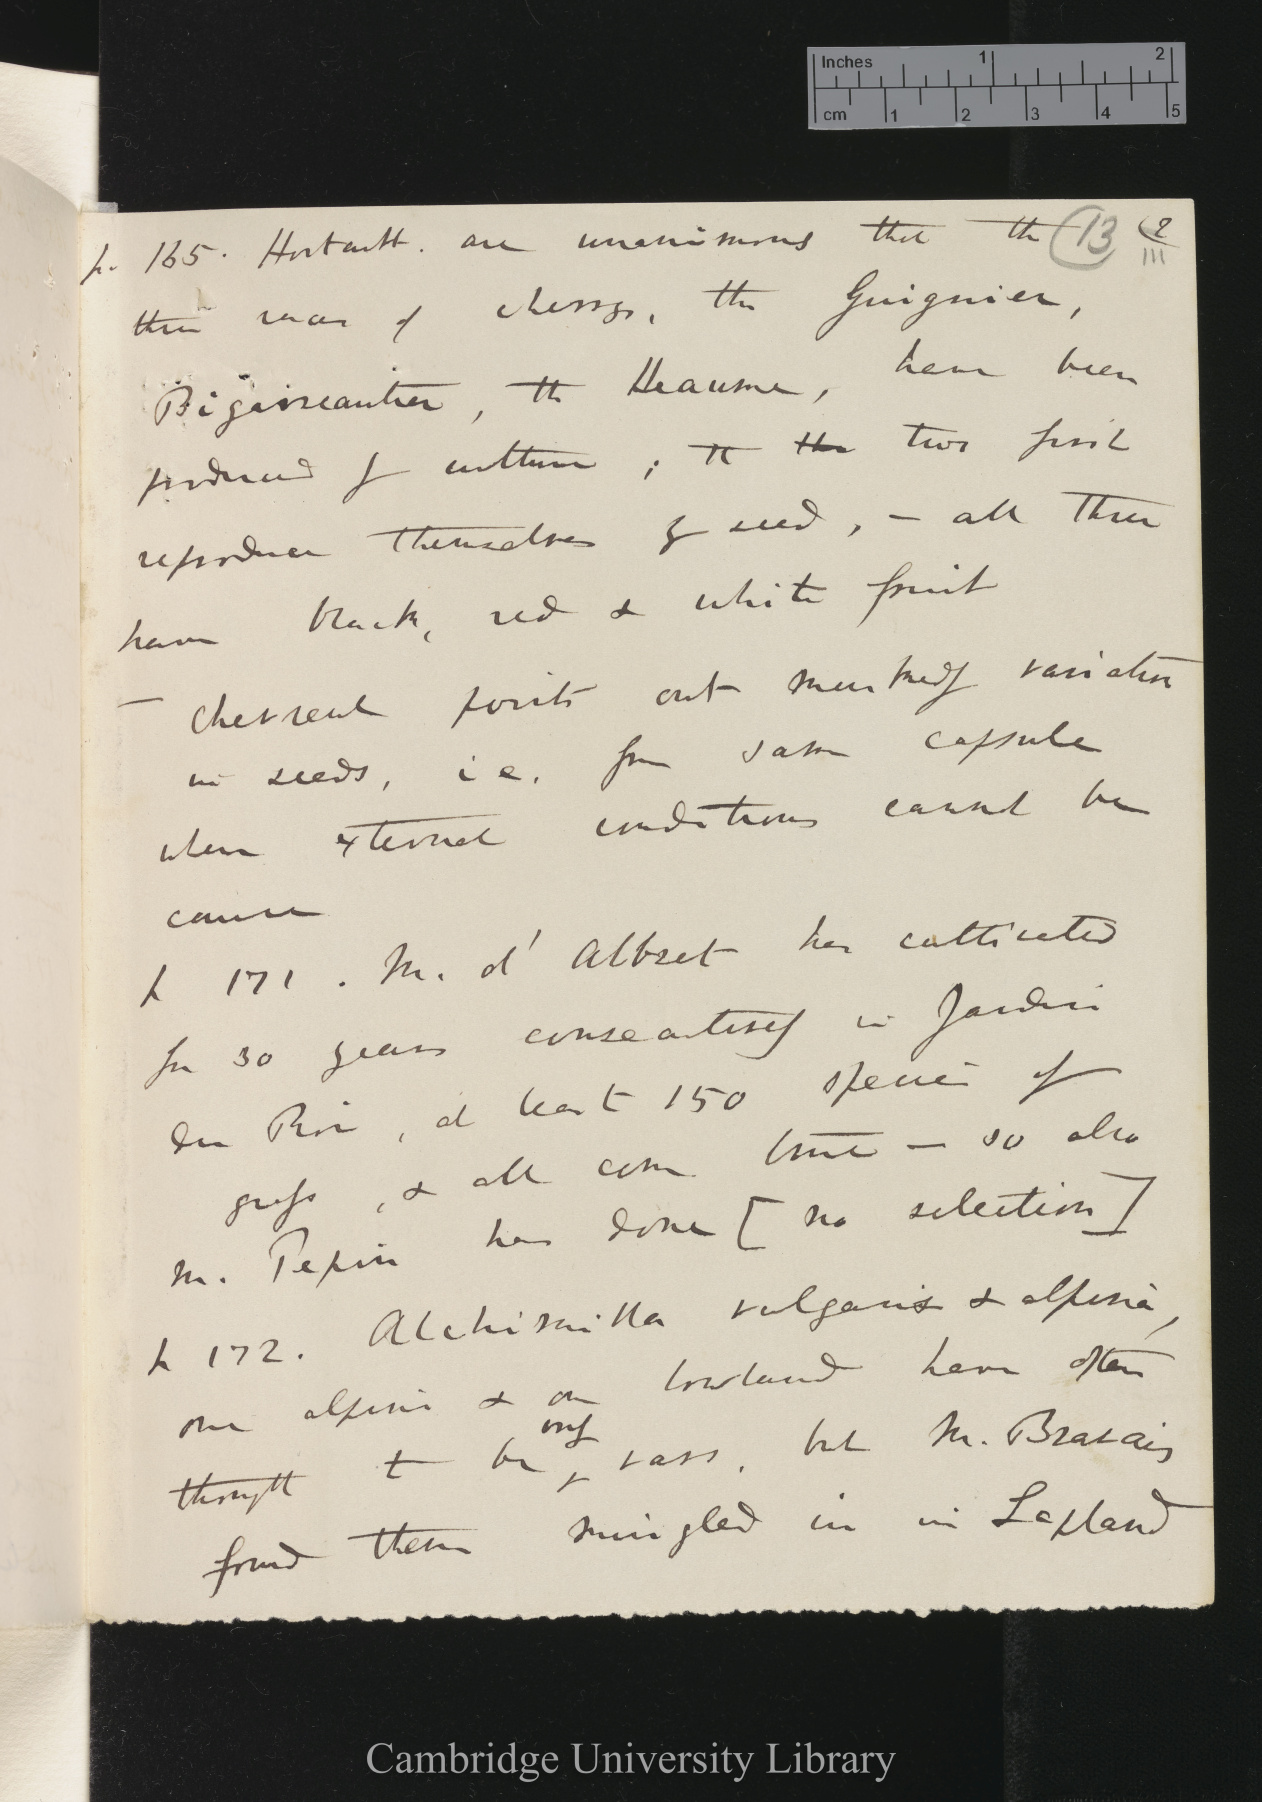 Inches 1 2
cm 1 2 3 4 5
p. 165. Horticult. are unanimous that the (13) 2
III
three races of cherrys, the Guignier,
Bigarreautier, the Heaume, have been
produced by culture; the the two first
reproduce themselves by seed, — all three
have black, red & white fruit
— Chevreul points out markedly variation
in seeds, i.e. from same capsule
when external conditions cannot be
cause
p 171. M. d'Albret has cultivated
for 30 years consecutively in Jardin
du Roi, at least 150 species of
grass, & all come true — so also
M. Pepin has done [no selection]
p 172. Alchimilla vulgaris & alpina,
one alpine & one lowland have often
only
thought to be vars, but M. Bravais
found them mingled in in Lapland
Cambridge University Library